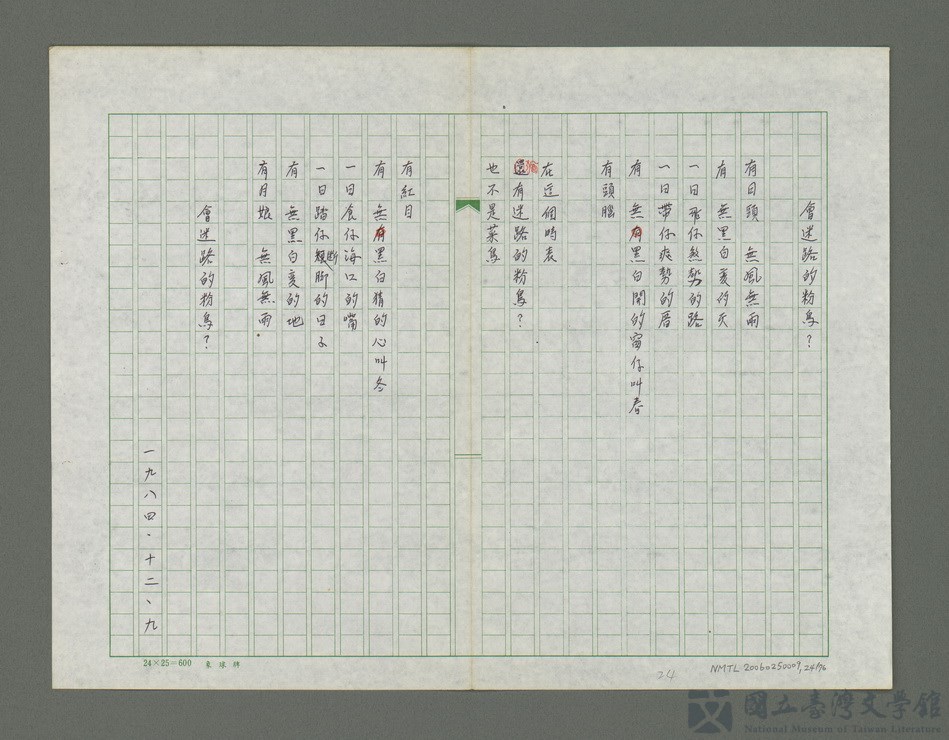 會迷路的粉鳥？
有日頭 無風無雨
有 無黑白変的天
一日飛仔煞勢的路
一日帶仔疲勢的厝
有 無黑白開的窗仔叫春
有頭腦
在這個時表
還有迷路的粉鳥？
也不是菜鳥
有紅目
有 無黑白猜的心叫冬
一日食仔海口的嘴
一日踏仔斷脚的日子
有 無黑白変的地
有月娘 無風無雨
會迷路的粉鳥？
一九八四·十二、九
24×25=600
NMTL 20060250009,24/76
24
國立臺灣文學館
National Museum of Taiwan Literature